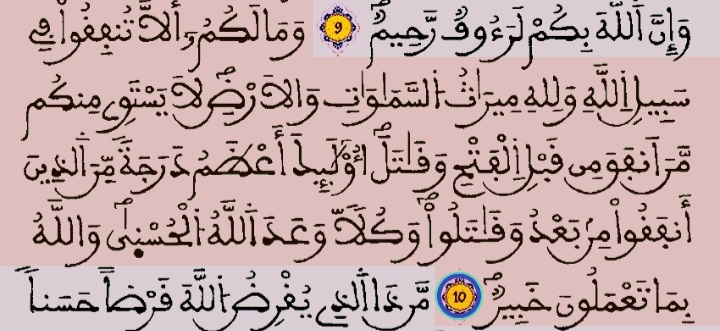 وَإِنَّ اَ۬للَّهَ بِكُمْ لَرَءُوفٞ رَّحِيمٞۖ 9 وَمَا لَكُمُۥٓ أَلَّا تُنفِقُواْ فِے
سَبِيلِ اِ۬للَّهِ وَلِلهِ مِيرَٰثُ اُ۬لسَّمَٰوَٰتِ وَالَارْضِۖ لَا يَسْتَوِے مِنكُم
مَّنَ اَنفَقَ مِن قَبْلِ اِ۬لْفَتْحِ وَقَٰتَلَۖ أُوْلَٰٓئِكَ أَعْظَمُ دَرَجَةٗ مِّنَ اَ۬لذِينَ
أَنفَقُواْ مِنۢ بَعْدُ وَقَٰتَلُواْۖ وَكُلّاٗ وَعَدَ اَ۬للَّهُ اُ۬لْحُسْن۪يٰۖ وَاللَّهُ
بِمَا تَعْمَلُونَ خَبِيرٞۖ 10 مَّن ذَا اَ۬لذِے يُقْرِضُ اُ۬للَّهَ قَرْضاً حَسَناٗ